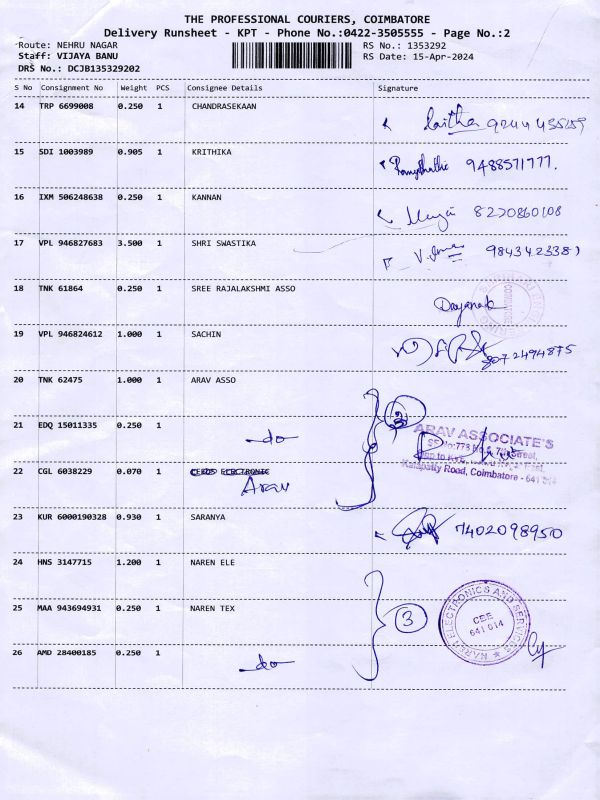 THE PROFESSIONAL COURIERS, COIMBATORE
Delivery Runsheet - KPT - Phone No.:0422-3505555 - Page No.:2
Route: NEHRU NAGAR RS No.: 1353292
Staff: VIJAYA BANU RS Date: 15-Apr-2024
DRS No.: DCJB135329202
S No Consignment No Weight PCS Consignee Details Signature
14 TRP 6699008 0.250 1 CHANDRASEKAAN
15 SDI 1003989 0.905 1 KRITHIKA 9488571777.
16 IXM 506248638 0.250 1 KANNAN 8220860108
17 VPL 946827683 3.500 1 SHRI SWASTIKA
18 TNK 61864 0.250 1 SREE RAJALAKSHMI ASSO
19 VPL 946824612 1.000 1 SACHIN 8072494875
20 TNK 62475 1.000 1 ARAV ASSO
21 EDQ 15011335 0.250 1 -do
ARAV ASSOCIATE'S
22 CGL 6038229 0.070 1
Kalapatty Road, Coimbatore - 641 014
Arav
23 KUR 6000190328 0.930 1 SARANYA 7402098950
24 HNS 3147715 1.200 1 NAREN ELE
25 MAA 943694931 0.250 1 NAREN TEX 3
NAREN ELECTRONICS AND SERVICES
CBE
641 014
26 AMD 28400185 0.250 1 -do